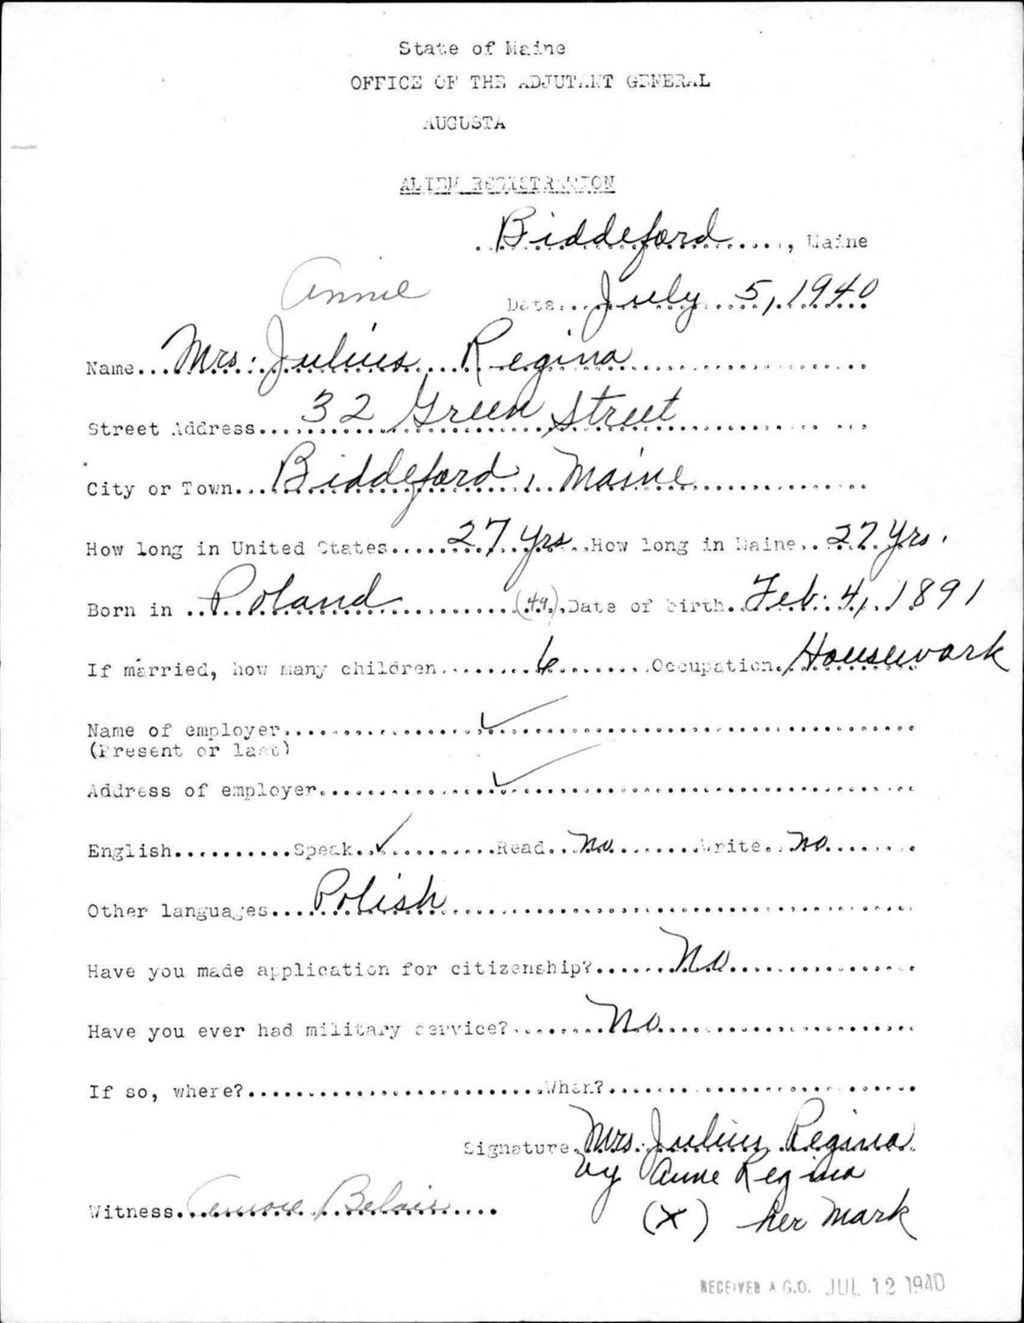 State of Maine
OFFICE OF THE ADJUTANT GENERAL
AUGUSTA
ALIEN REGISTRATION
Biddeford, Maine
Annie
Date July 5, 1940
Name Mrs. Julius Regina
Street Address 32 Green Street
City or Town Biddeford, Maine
How long in United States 27 yrs How long in Maine 27 Yrs.
Born in Poland (49) Date of birth Feb. 4, 1891
If married, how many children 6 Occupation Housework
Name of employer ✓
(Present or last)
Address of employer ✓
English Speak ✓ Read No Write No
Other languages Polish
Have you made application for citizenship? No
Have you ever had military service? No
If so, where? When?
Signature Mrs. Julius Regina
by Anne Regina
Witness
(X) her Mark
RECEIVED A.G.O. JUL 12 1940